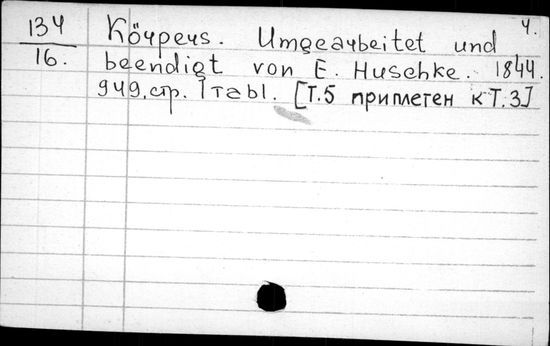 4.
134 Körpers. Umgearbeitet und
16. beendigt von E. Huschke. 1844.
949.стр. 1 tabl. [Т.5 приплетен к Т.3]